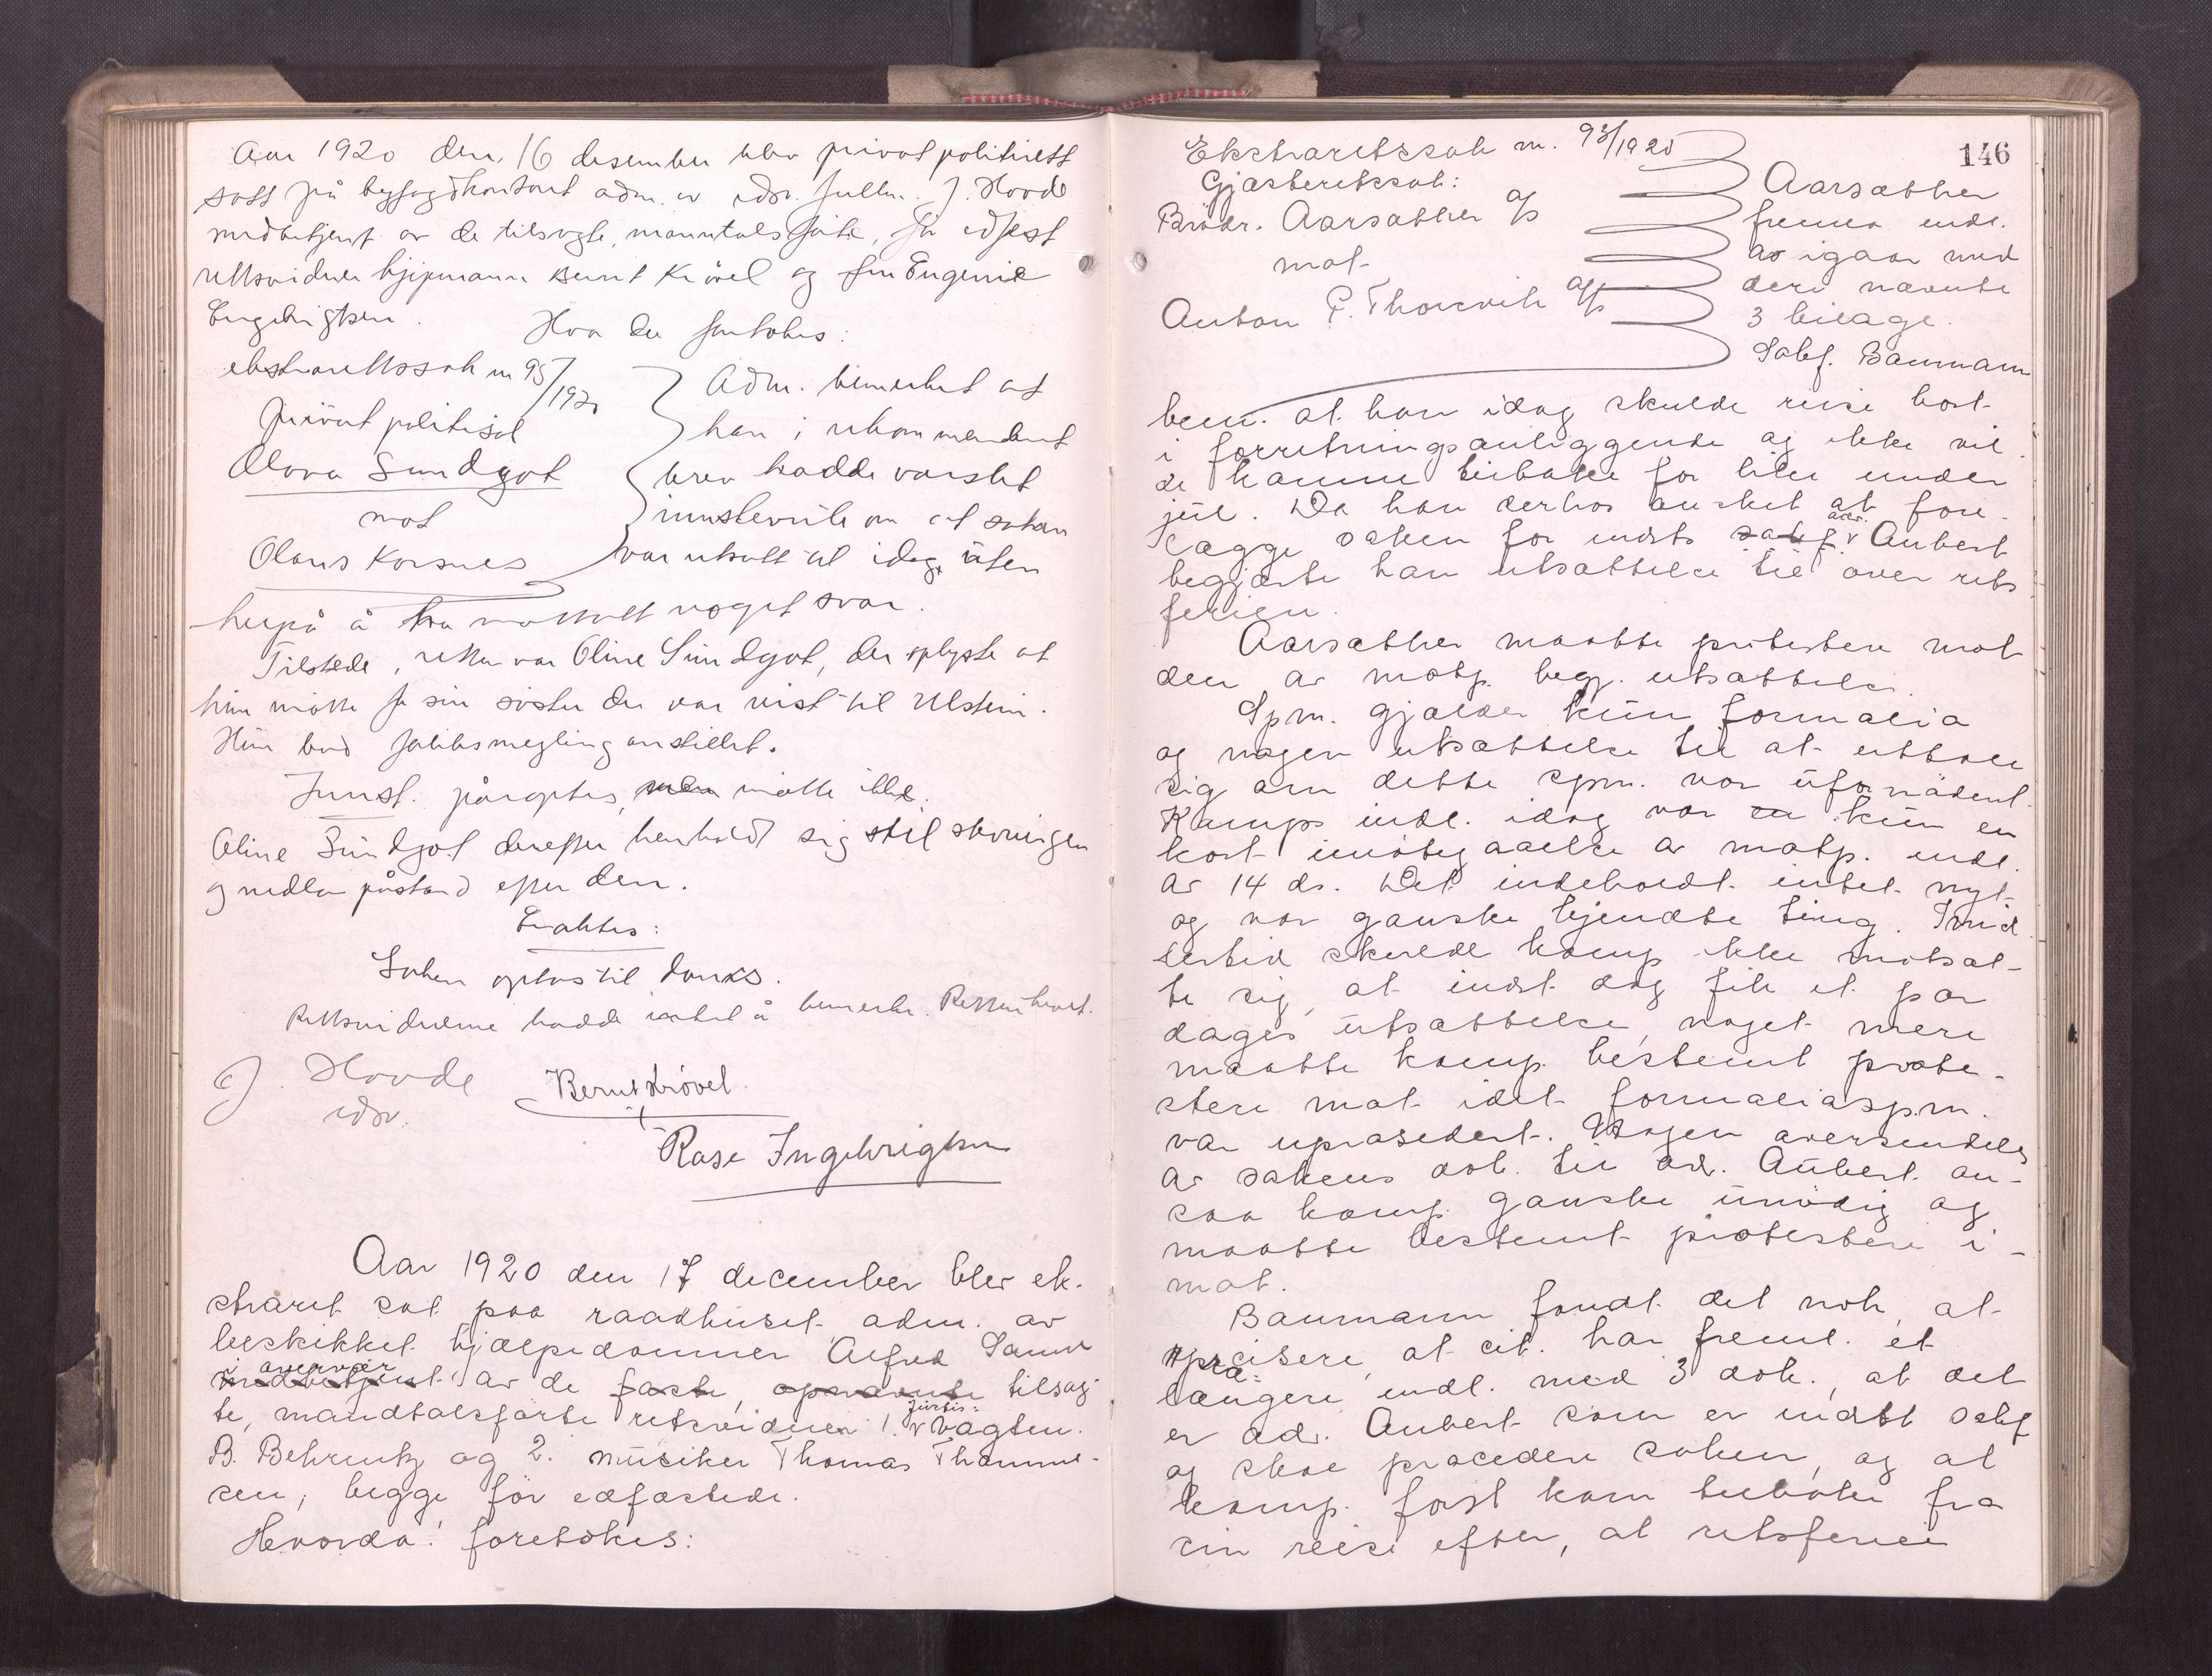 Aar 1920 den 16 desember blev privat politirett
satt på byfogdkontoret adm. av edsv. fullm. J. Hovde
medbetjent av de tilsagte, manntalsførte, før edfest
rettsvidner kjøpmann Bernt Krövel og fru Eugenie
Engebrigtsen.
Hvor da foretokes:
ekstrarettssak nr 95/1920
Privat politisak
Olova Sundgot
mot
Olaus Korsnes
Adm. bemerket at
han i rekommandert
brev hadde varslet
innstevnte om at saken
var utsatt til idag, uten
herpå å ha mottatt noget svar.
Tilstede i retten var Oline Sundgot, der oplyste at
hun møtte for sin søster der var reist til Ulstein.
Hun bad forliksmegling anstillet.
Innst. påroptes, men møtte ikke.
Oline Sundgot derefter henholdt sig til stevningen
og nedla påstand efter den.
Eraktes:
Saken optas til doms.
Rettsvidnerne hadde intet å bemerke. Retten hevet.
J. Hovde
edsv.
Bernt Krövel.
Rase Ingebrigtsen
Aar 1920 den 17 december blev ek-
straret sat paa raadhuset adm. av
beskikket hjælpedommer Alfred
i overvær
medbetjent av de faste, opnævnte tilsag-
te, mandtalsførte retsvidner 1. Vagtm.
B. Behrentz og 2. musiker Thomas Thomme-
sen, begge før edfæstede.
Hvorda foretokes:
146
Ekstraretssak nr. 93/1920
Gjæsteretssak:
Brödr. Aarsæther A/S
mot
Anton P. Thorsvik A/S
Aarsæther
fremla indl.
av igaar med
deri nævnte
3 bilage.
Sakf. Baumann
bem. at han idag skulde reise bort
i forretningsanliggende og ikke vil-
de komme tilbake før like under
jul. Da han derhos ønsket at fore-
lægge saken for indst. sakf. adv. Aubert
begjærte han utsættelse til over rets
ferien.
Aarsæther maatte protestere mot
den av motp. begj. utsættelse.
Spm. gjælder kun formalia
og nogen utsættelse til at uttale
sig om dette spm. var ufornødent.
Komps indl. idag var en kun en
kort imøtegaaelse av motp. indl.
av 14 ds. Det indeholdt intet nyt
og var ganske kjendte ting. Imid-
lertid skulde komp. ikke motsæt-
te sig, at indst. dog fik et par
dages utsættelse, noget mere
maatte komp. bestemt prote-
stere mot idet formaliaspm.
var uprosedert. Nogen oversendelse
av sakens dok. til adv. Aubert an-
saa komp. ganske unødig og
maatte bestemt protestere i-
mot.
Baumann fandt det nok, at
præcisere, at cit. har freml. et
længere indl. med 3 dok., at det
er adv. Aubert som er indst. sakf
og skal procedere saken, og at
komp. først kom tilbake fra
sin reise efter, at retsferien